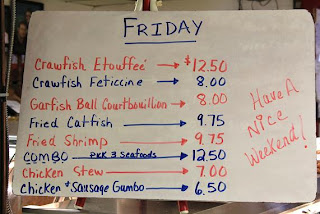 FRIDAY
Crawfish Etouffeé → $12.50
Crawfish Feticcine → 8.00
Garfish Ball Courtbouillion → 8.00
Fried Catfish → 9.75
Fried Shrimp → 9.75
COMBO PICK 3 Seafoods → 12.50
Chicken Stew → 7.00
Chicken & Sausage Gumbo → 6.50
Have A
Nice
Weekend!